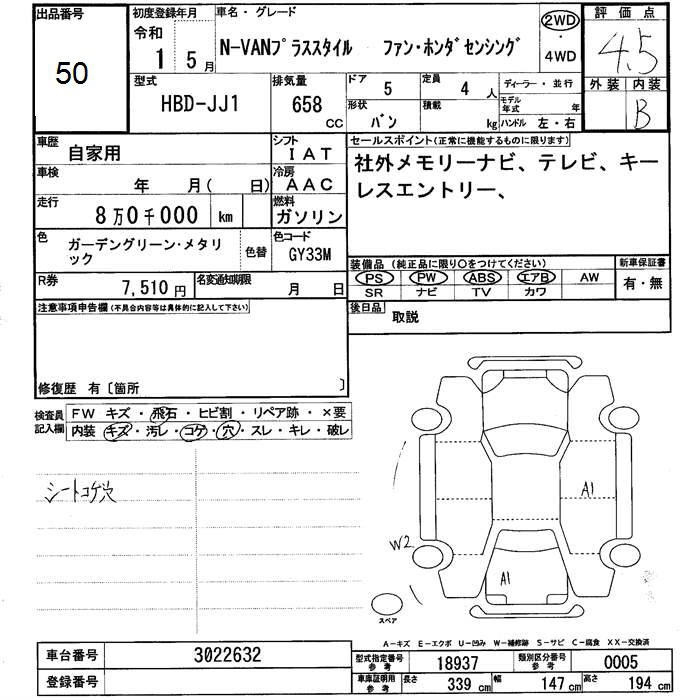 出品番号
50
初度登録年月
令和
1 5月
車名・グレード
N-VANプラススタイル ファン・ホンダセンシング
2WD
・
4WD
評価点
4.5
外装 内装
B
型式
HBD-JJ1
排気量
658
CC
ドア
5
定員
4 人
形状
バン
積載
kg
ディーラー・並行
モデル年式 年
ハンドル 左・右
車歴
自家用
シフト
IAT
車検
年 月( 日)
冷房
AAC
走行
8万0千000 km
燃料
ガソリン
色
ガーデングリーン・メタリック
色替
色コード
GY33M
R券
7,510円
名変通知期限
月 日
セールスポイント(正常に機能するものに限ります)
社外メモリーナビ、テレビ、キー
レスエントリー、
装備品(純正品に限り○をつけてください)
PS PW ABS エアB AW
SR ナビ TV カワ
新車保証書
有・無
後日品
取説
注意事項申告欄(不具合内容等は具体的に記入して下さい)
修復歴 有〔箇所 〕
検査員
記入欄
FW キズ・飛石・ヒビ割・リペア跡・×要
内装 キズ・汚レ・コゲ・穴・スレ・キレ・破レ
シートコゲ穴
A1
W2
A1
スペア
A-キズ E-エクボ U-凹み W-補修跡 S-サビ C-腐食 XX-交換済
車台番号
3022632
登録番号
型式指定番号
参考
18937
類別区分番号
参考
0005
車庫証明用
参考
長さ 339 cm
幅 147 cm
高さ 194 cm